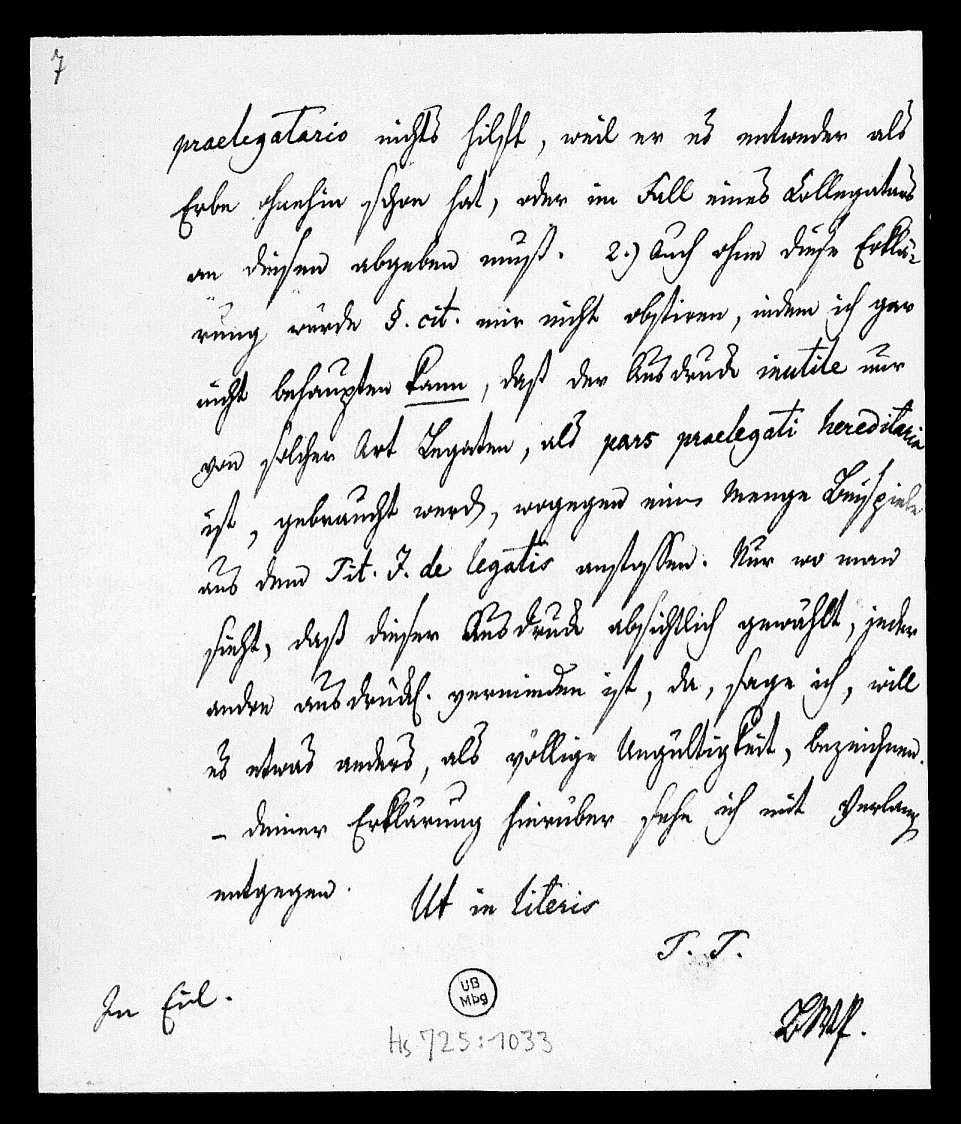 7
praelegatario nichts hilfft, weil er es entweder als
Erbe ohnehin schon hat, oder im Fall eines Collegatars
an diesen abgeben muß. 2.) Auch ohne diese Erklä-
rung würde §. cit. mir nicht obstiren, indem ich gar
nicht behaupten kann, daß der Ausdruck inutile nur
von solcher Art Legaten, als pars praelegati hereditaria
ist, gebraucht werde, wogegen eine Menge Beispiele
aus dem Tit. J. de legatis anstossen. Nur wo man
sieht, daß dieser Ausdruck absichtlich gewählt, jeder
andre ausdrückl. vermieden ist, da, sage ich, will
es etwas anders, als völlige Ungültigkeit, bezeichnen.
– Deiner Erklärung hierüber sehe ich mit Verlang
entgegen.
Ut in literis
T. T.
In Eil.
UB
Mbg
Hs 725:1033